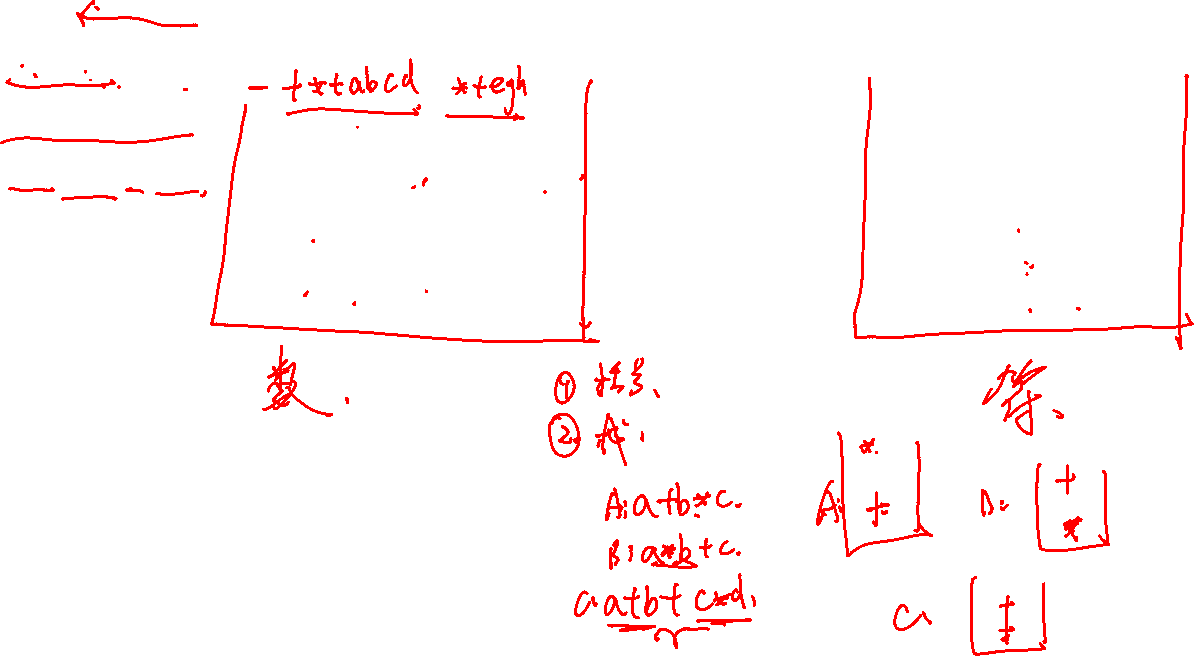 - +*+abcd *+egh
数.
① 括号、
②
符、
A: a+b*c.
B: a*b+c.
C: a+b+c*d.
A: * +
B: + *
C: + +